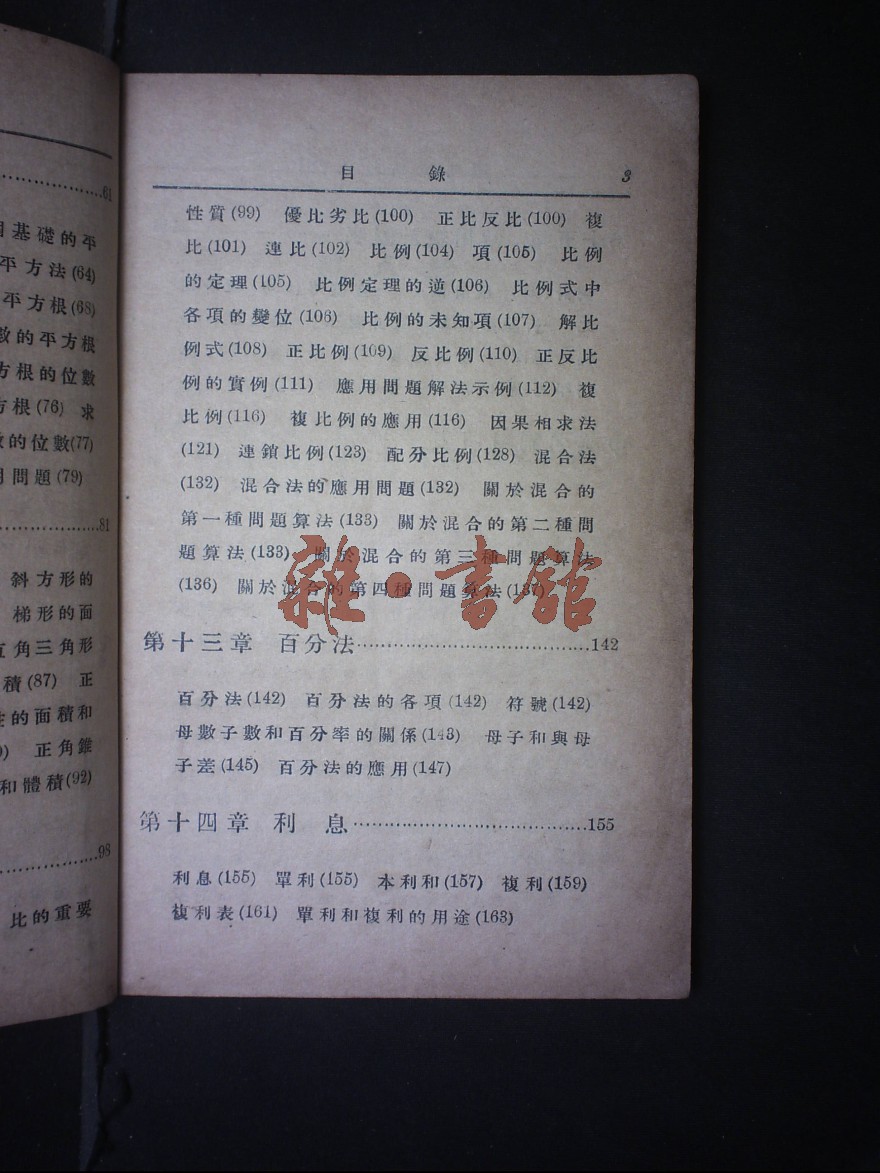 目錄 3
性質(99) 優比劣比(100) 正比反比(100) 複
比(101) 連比(102) 比例(104) 項(105) 比例
的定理(105) 比例定理的逆(106) 比例式中
各項的變位(106) 比例的未知項(107) 解比
例式(108) 正比例(109) 反比例(110) 正反比
例的實例(111) 應用問題解法示例(112) 複
比例(116) 複比例的應用(116) 因果相求法
(121) 連鎖比例(123) 配分比例(128) 混合法
(132) 混合法的應用問題(132) 關於混合的
第一種問題算法(133) 關於混合的第二種問
題算法(133) 關於混合的第三種問題算法
(136) 關於混合的第四種問題算法(137)
第十三章 百分法……………………………………142
百分法(142) 百分法的各項(142) 符號(142)
母數子數和百分率的關係(143) 母子和與母
子差(145) 百分法的應用(147)
第十四章 利息……………………………………155
利息(155) 單利(155) 本利和(157) 複利(159)
複利表(161) 單利和複利的用途(163)
雜·書館
……………61
基礎的平
平方法(64)
平方根(68)
數的平方根
方根的位數
方根(76) 求
的位數(77)
問題(79)
……………81
斜方形的
梯形的面
直角三角形
積(87) 正
的面積和
正角錐
和體積(92)
……………98
比的重要